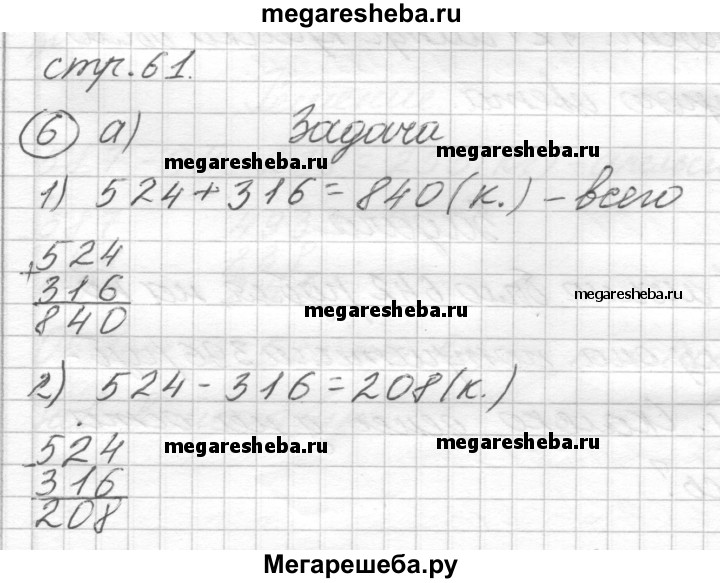 megaresheba.ru
стр. 61.
6 а) Задача
megaresheba.ru megaresheba.ru
1) 524 + 316 = 840 (к.) – всего
+ 524
316
840
megaresheba.ru megaresheba.ru
2) 524 - 316 = 208 (к.)
- 524
316
208
megaresheba.ru megaresheba.ru
Мегарешеба.ру